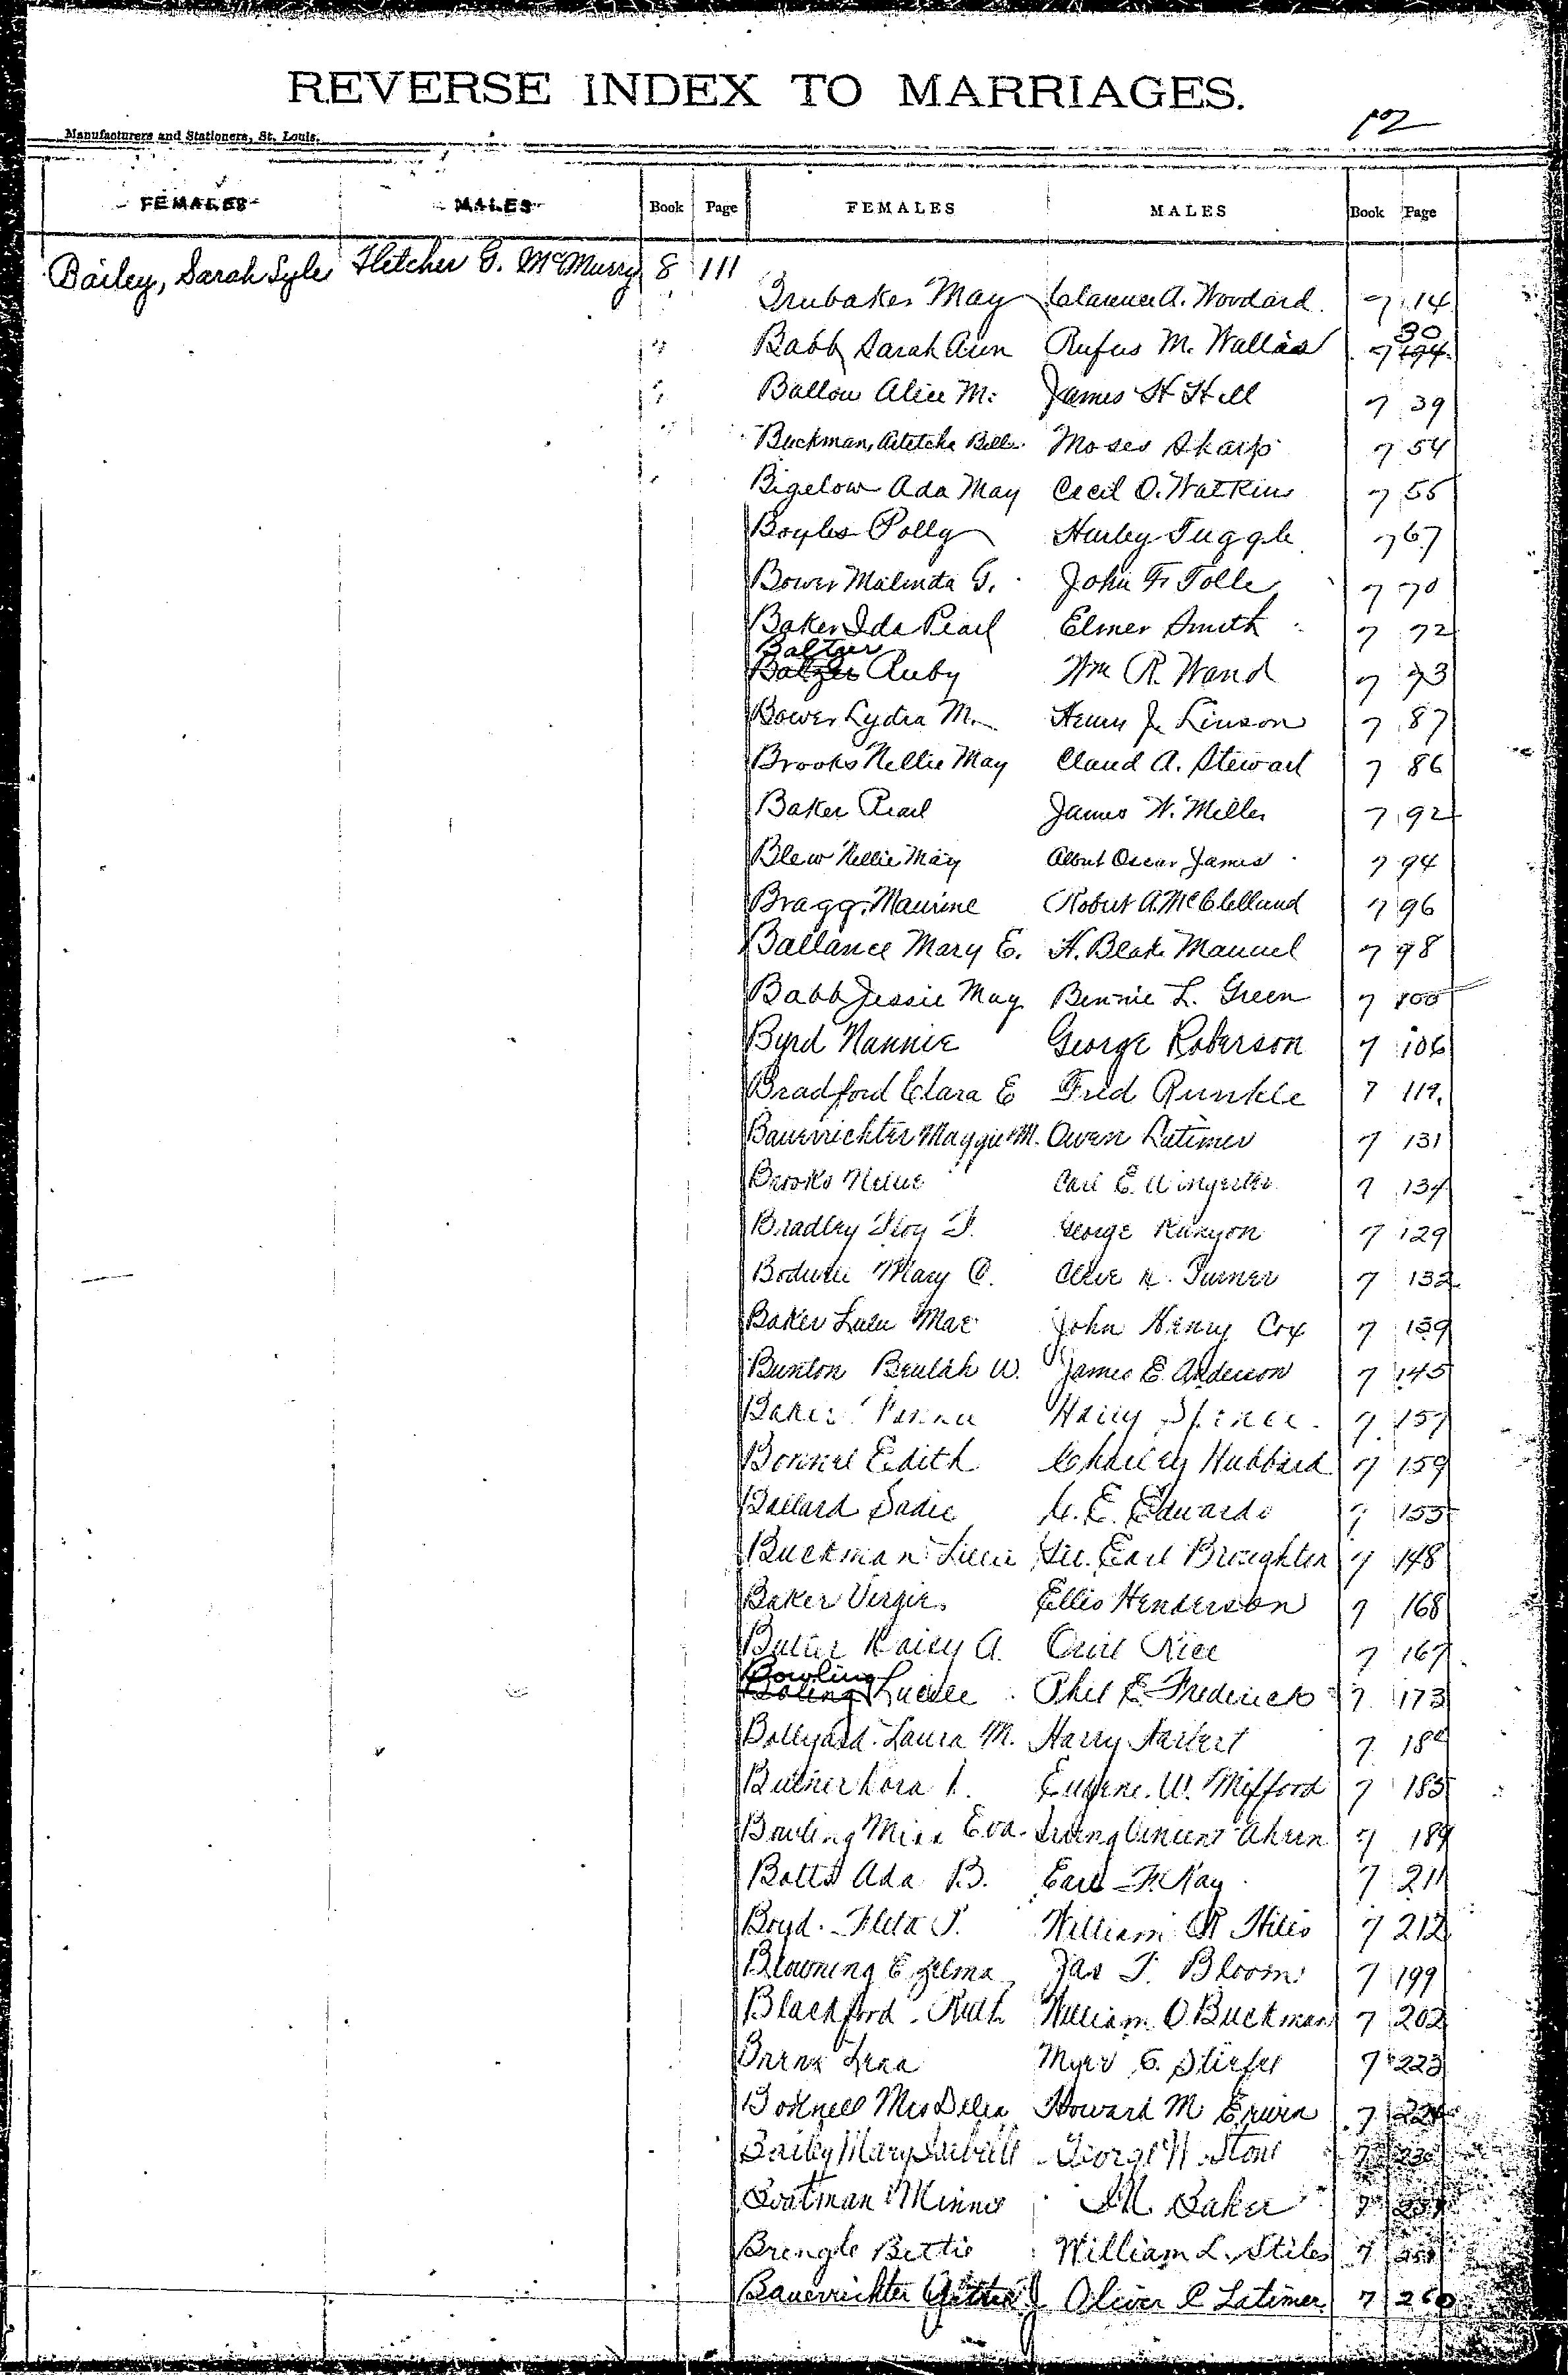 REVERSE INDEX TO MARRIAGES.
12
Manufacturers and Stationers, St. Louis.
FEMALES MALES Book Page FEMALES MALES Book Page
Bailey, Sarah Lyle Fletcher G. McMurry 8 111
Brubaker May Clarence A. Woodard 7 14
Babb Sarah Ann Rufus M. Wallas 7 30
Ballow Alice M. James H Hill 7 39
Buckman, Belle Moses Sharp 7 54
Bigelow Ada May Cecil O. Watkins 7 55
Boyles Polly Hurley Tuggle 7 67
Bower Malinda G. John F. Tolle 7 70
Baker Ida Pearl Elmer Smith 7 72
Baltzer
Ruby Wm R. Wand 7 73
Bower Lydia M. Henry J. Linson 7 87
Brooks Nellie May Claud A. Stewart 7 86
Baker Pearl James W. Miller 7 92
Blew Nellie May Albert Oscar James 7 94
Bragg, Maurine Robert A. McClelland 7 96
Ballance Mary E. H. Blake Manuel 7 98
Babb Jessie May Bennie L. Green 7 100
Byrd Nannie George Roberson 7 106
Bradford Clara E Fred Runkle 7 119
Bauerrichter Maggie M. Owen Latimer 7 131
Brooks Nellie Carl E. Wingerter 7 134
Bradley Floy F. George Runyon 7 129
Mary C. Turner 7 132
Baker Lulu Mae John Henry Cox 7 139
Bunton Beulah W. James E. Anderson 7 145
Baker Harry Spence 7 157
Bonnel Edith Charley Hubbard 7 159
Ballard Sadie E. Edwards 7 155
Buckman Earl Broughton 7 148
Baker Virgie Ellis Henderson 7 168
Butler Daisy A. Orril Rice 7 167
Bowling
Boling Lucille Phil E. Frederick 7 173
Bollyard Laura M. Harry 7 18
Butner Eugene W. Mifford 7 185
Bowling Miss Eva Irving Vincent Ahern 7 189
Botts Ada B. Earl F. Kay 7 211
Boyd Fleta William R 7 212
Browning E Zelma Jas T. Bloom 7 199
Blackford Ruth William O Buckman 7 202
Lena Myer G. Stiefel 7 223
Bodnell Mrs Delia Howard M Erwin 7 224
Bailey Mary George W. Stone 7
Boatman Minnie Baker 7
Brengle Bettie William L. Stiles 7
Bauerrichter Oliver C Latimer 7 260